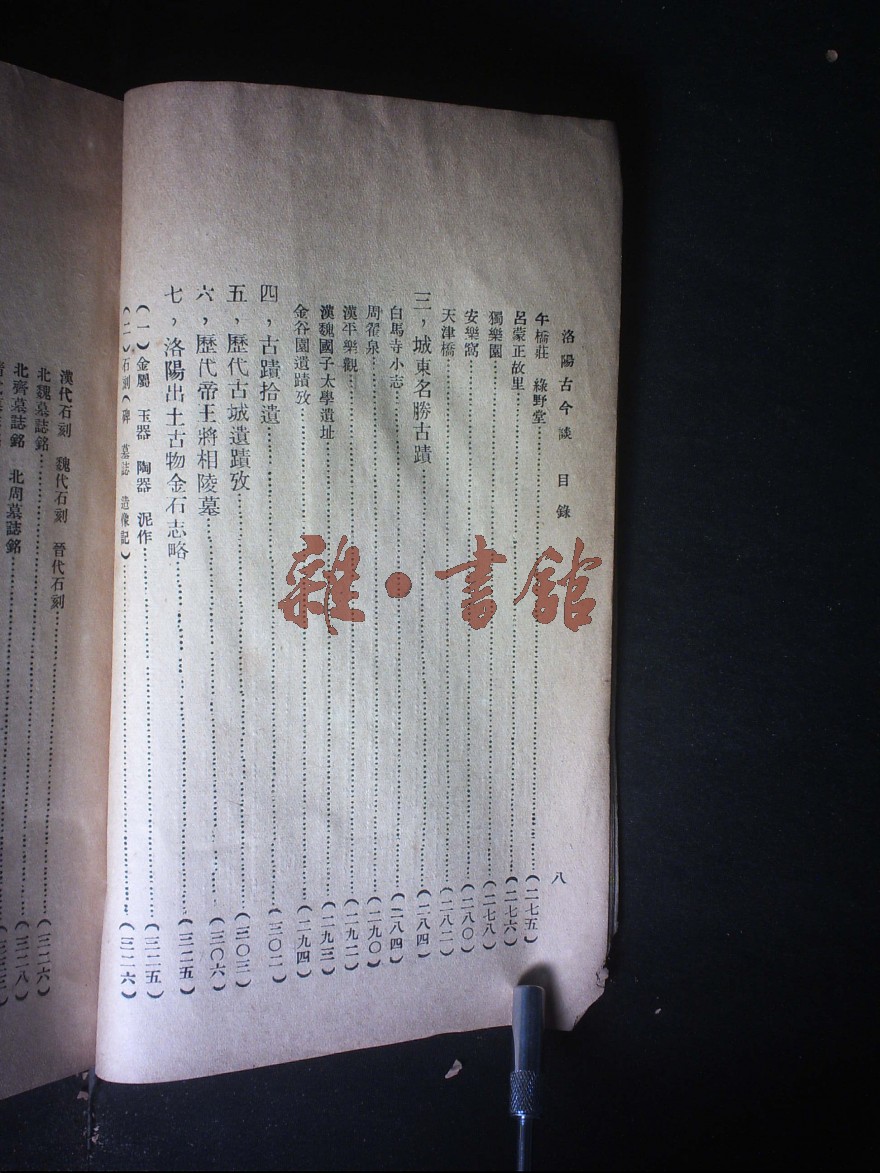 洛陽古今談 目錄
八
午橋莊 綠野堂……(二七五)
呂蒙正故里……(二七六)
獨樂園……(二七八)
安樂窩……(二八〇)
天津橋……(二八二)
三，城東名勝古蹟……(二八四)
白馬寺小志……(二八四)
周翟泉……(二九〇)
漢平樂觀……(二九二)
漢魏國子太學遺址……(二九三)
金谷園遺蹟攷……(二九四)
四，古蹟拾遺……(三〇二)
五，歷代古城遺蹟攷……(三〇三)
六，歷代帝王將相陵墓……(三〇六)
七，洛陽出土古物金石志略……(三二五)
(一)金屬 玉器 陶器 泥作……(三二五)
(二)石刻(碑 墓誌 造像記)……(三二六)
漢代石刻 魏代石刻 晉代石刻……(三二六)
北魏墓誌銘……(三二八)
北齊墓誌銘 北周墓誌銘
雜·書館